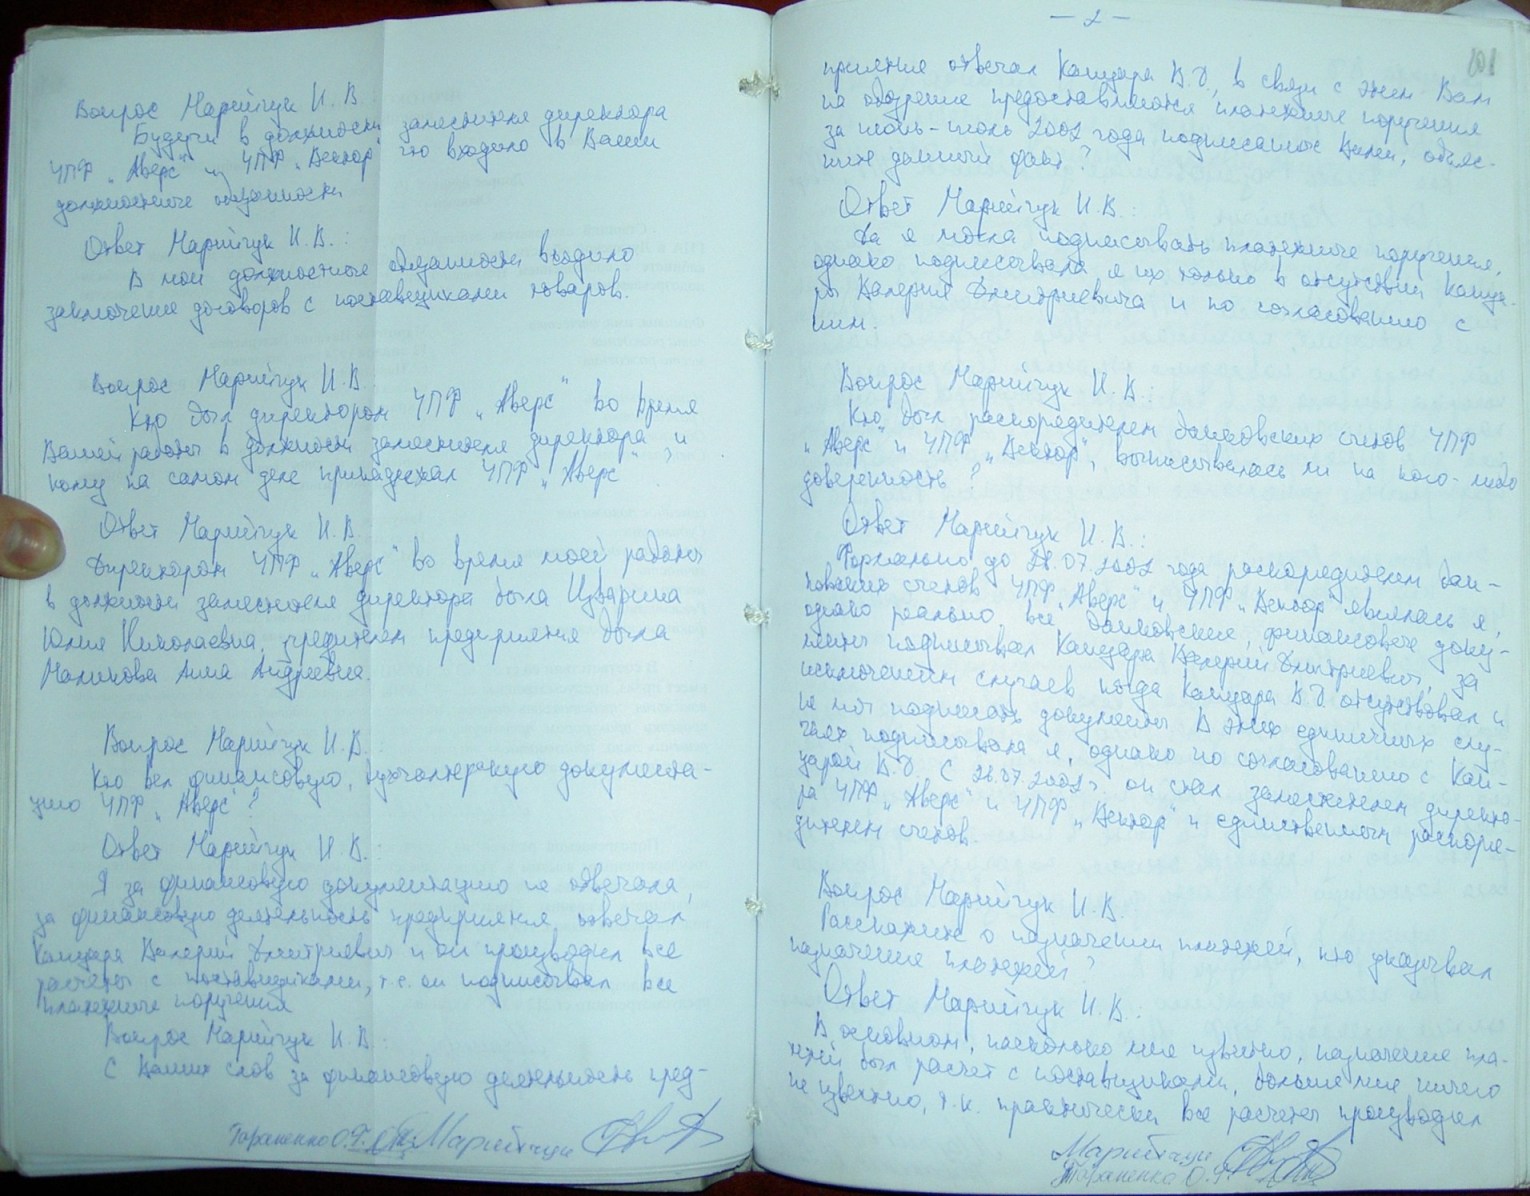 Вопрос Марийчук И.В.:
Будучи в должности заместителя директора
ЧПФ „Аверс“ и ЧПФ „Вектор“ что входило в Ваши
должностные обязанности
Ответ Марийчук И.В.:
В мои должностные обязанности входило
заключение договоров с поставщиками товаров.
Вопрос Марийчук И.В.:
Кто был директором ЧПФ „Аверс“ во время
Вашей работы в должности заместителя директора и
кому на самом деле принадлежал ЧПФ „Аверс“?
Ответ Марийчук И.В.
Директором ЧПФ „Аверс“ во время моей работы
в должности заместителя директора была
Юлия Николаевна, учредителем предприятия была
Маликова Анна Андреевна.
Вопрос Марийчук И.В.:
Кто вел финансовую, бухгалтерскую документа-
цию ЧПФ „Аверс“?
Ответ Марийчук И.В.:
Я за финансовую документацию не отвечала,
за финансовую деятельность предприятия отвечал
Кацара Валерий Дмитриевич и он производил все
расчеты с поставщиками, т.е. он подписывал все
платежные поручения
Вопрос Марийчук И.В.:
С Ваших слов за финансовую деятельность пред-
Тараненко О.Г. Марийчук
— 2 —
101
приятия отвечал Кацара В.Д., в связи с этим Вам
на обозрение предоставляются платежные поручения
за июнь-июль 2002 года подписанные Вами, объяс-
ните данный факт?
Ответ Марийчук И.В.:
Да я могла подписывать платежные поручения,
однако подписывала я их только в отсутствии Каца-
ры Валерия Дмитриевича и по согласованию с
ним.
Вопрос Марийчук И.В.
Кто был распорядителем банковских счетов ЧПФ
„Аверс“ и ЧПФ „Вектор“, выписывалась ли на кого-либо
доверенность?
Ответ Марийчук И.В.:
Формально до 28.07.2002 года распорядителем бан-
ковских счетов ЧПФ „Аверс“ и ЧПФ „Вектор“ являлась я,
однако реально все банковские, финансовые доку-
менты подписывал Кацара Валерий Дмитриевич, за
исключением случаев когда Кацара В.Д. отсутствовал и
не мог подписать документы. В этих единичных слу-
чаях подписывала я, однако по согласованию с Кац-
арой В.Д. С 28.07.2002г. он стал заместителем директо-
ра ЧПФ „Аверс“ и ЧПФ „Вектор“ и единственным распоря-
дителем счетов.
Вопрос Марийчук И.В.
Расскажите о назначении платежей, кто указывал
назначение платежей?
Ответ Марийчук И.В.:
В основном, насколько мне известно, назначение пла-
тежей был расчет с поставщиками, больше мне ничего
не известно, т.к. практически все расчеты производил
Марийчук
Тараненко О.Г.